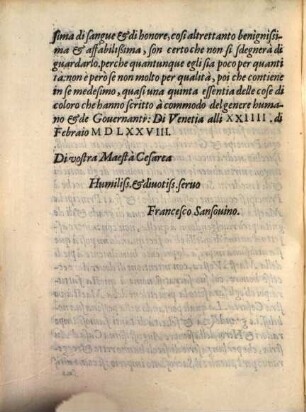 sima di sangue & di honore, cosi altrettanto benignissi
ma & affabilissima, son certo che non si sdegnerà di
guardarlo, perche quantunque egli sia poco per quanti
tà: non è però se non molto per qualità, poi che contiene
in se medesimo, quasi una quinta essentia delle cose di
coloro che hanno scritto à commodo del genere huma
no & de Governanti: Di Venetia alli XXIIII. di
Febraio M D LXXVIII.
Di vostra Maestà Cesarea
Humiliss. & divotiss. servo
Francesco Sansovino.